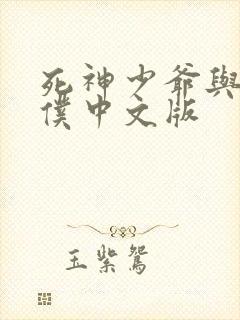 死神少爺與
僕中文版
玉紫鴛